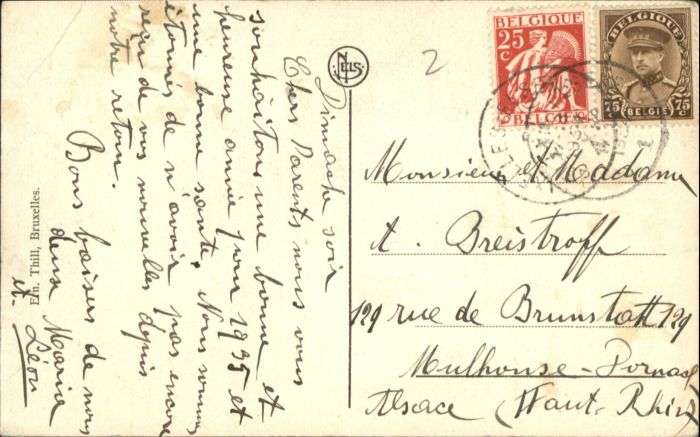 Dimache soir
Chers Parents nous vous
souhaitons une bonne et
heureuse année pour 1935 et
une bonne santé. Nous sommes
étonnés de n'avoir pas encore
reçu de vos nouvelles depuis
notre retour.
Bons baisers de nous
deux Maria
et Léon
Ern. Thill, Bruxelles.
NELS
2
BELGIQUE
25
C
BELGIE
BELGIQUE
75 75
C C
BELGIE
Monsieur et Madame
A. Breistroff
129 rue de Brunstatt 129
Mulhouse-Dornach
Alsace (Haut-Rhin)